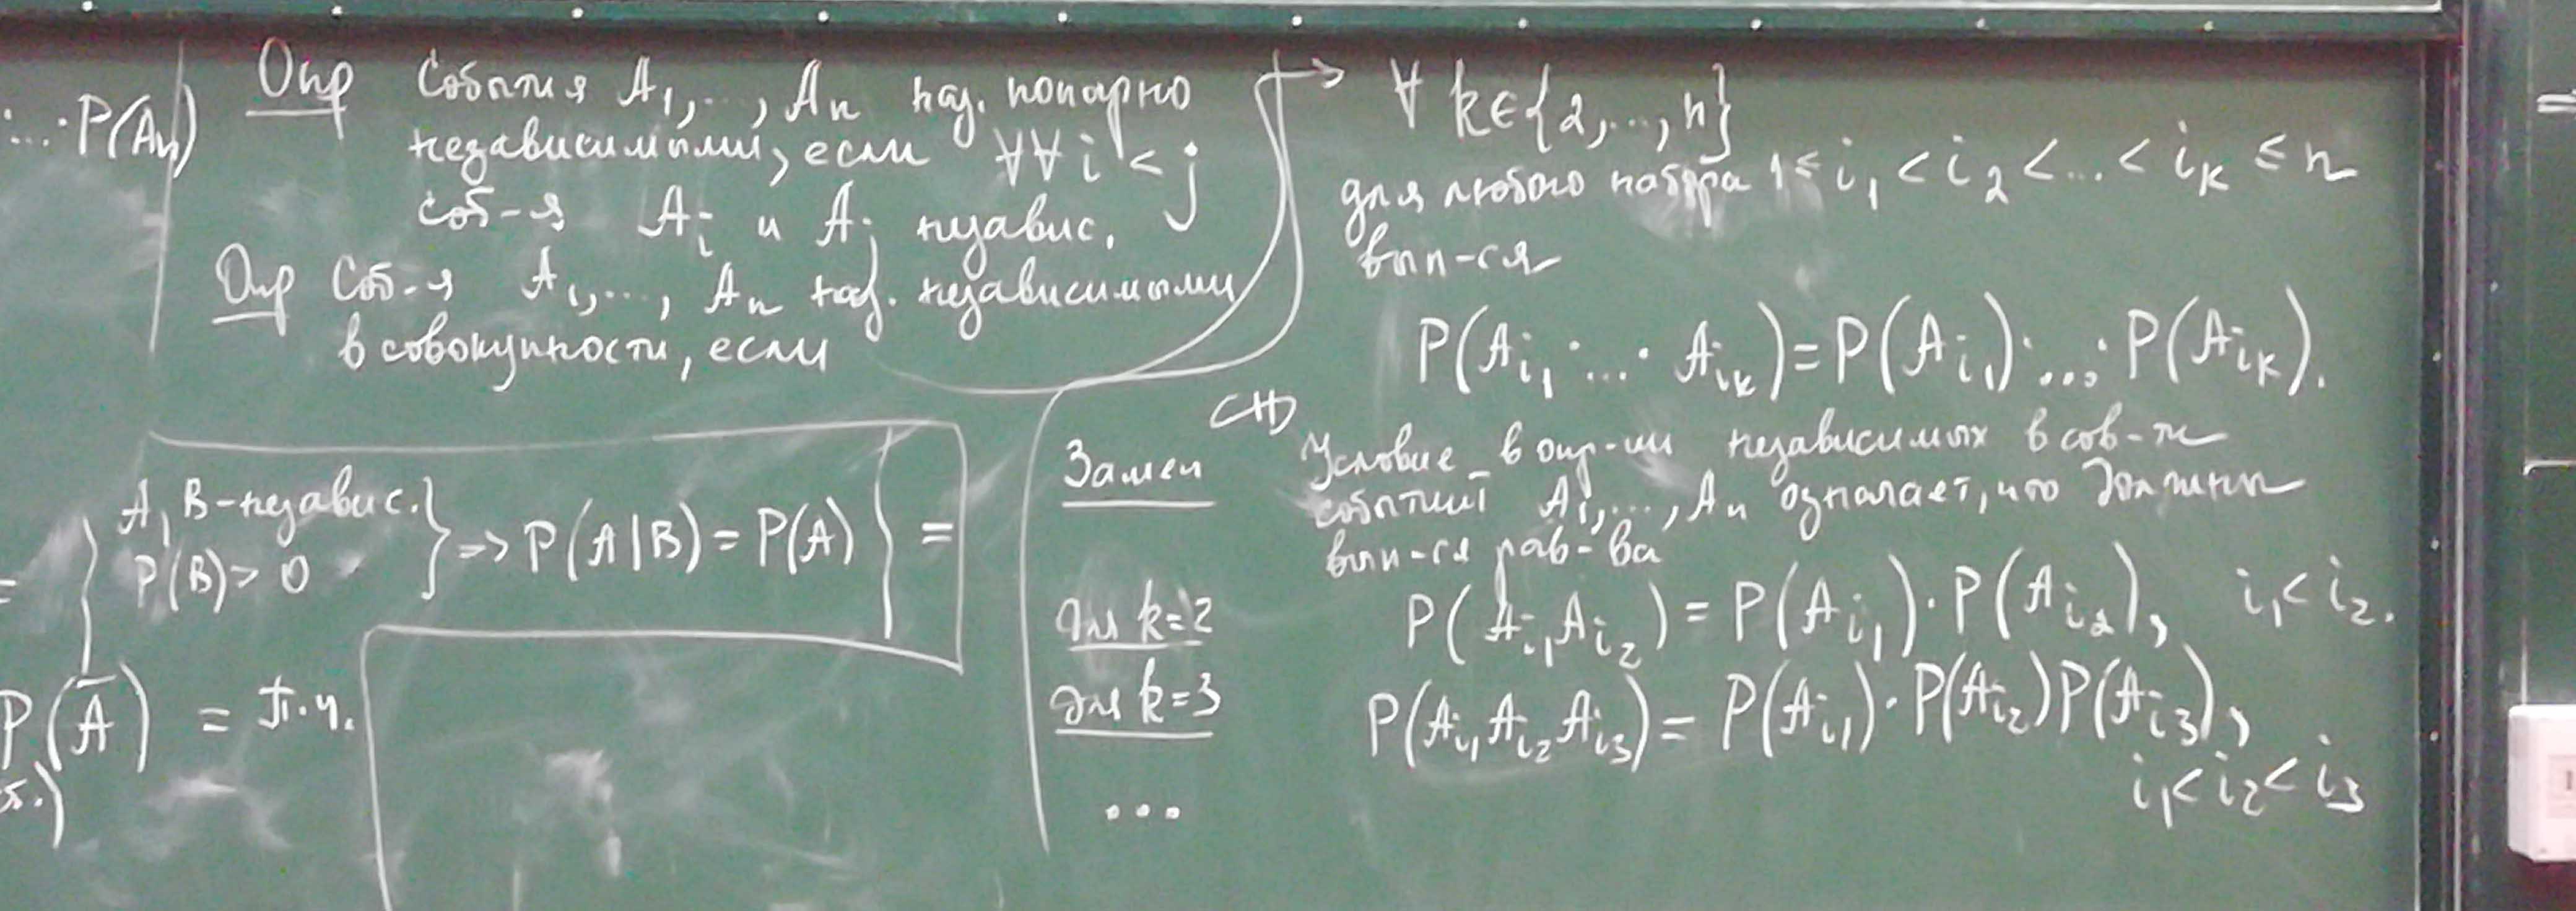 ...·P(Aₙ)
Опр События A₁,..., Aₙ наз. попарно
независимыми, если ∀∀ i < j
соб-я Aᵢ и Aⱼ независ.
Опр Соб-я A₁,..., Aₙ наз. независимыми
в совокупности, если
∀ k∈{2,..., n}
для любого набора 1 ≤ i₁ < i₂ < ... < iₖ ≤ n
вып-ся
P(A_{i₁}·...·A_{iₖ}) = P(A_{i₁})·...·P(A_{iₖ}).
A, B - независ.}
P(B) > 0
=> P(A|B) = P(A) } =
P(Ā) = т.ч.
Замеч
Условие в опр-ии независимых в сов-ти
событий A₁,..., Aₙ означает, что должны
вып-ся рав-ва
для k=2
P(A_{i₁}A_{i₂}) = P(A_{i₁})·P(A_{i₂}), i₁ < i₂.
для k=3
P(A_{i₁}A_{i₂}A_{i₃}) = P(A_{i₁})·P(A_{i₂})P(A_{i₃}),
i₁ < i₂ < i₃
...